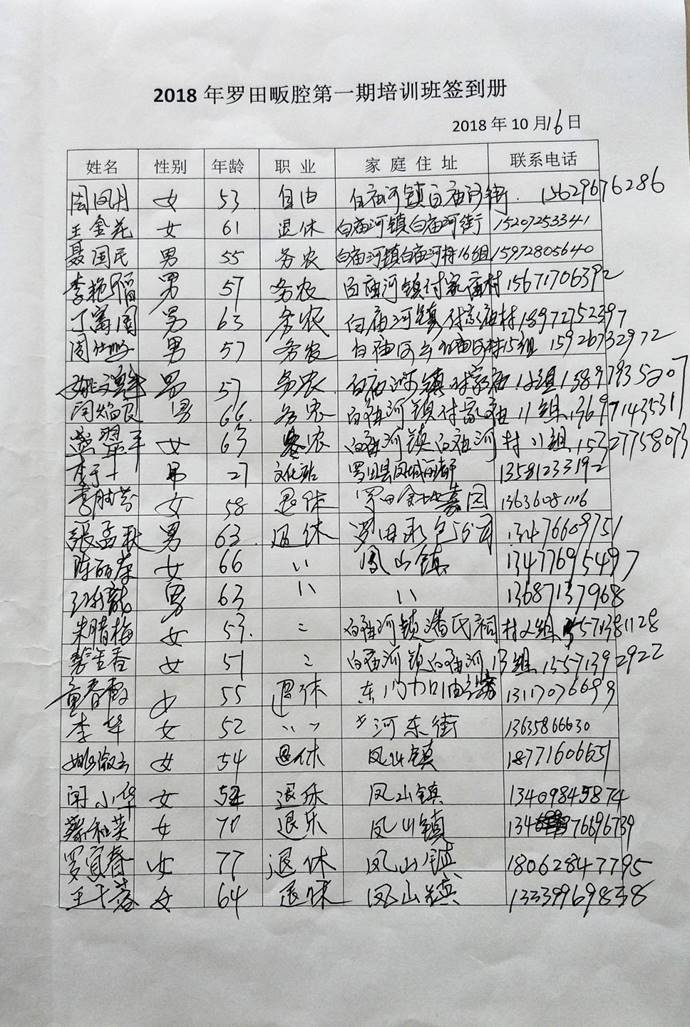 2018 年罗田畈腔第一期培训班签到册
2018 年 10 月 16 日
姓名 性别 年龄 职 业 家 庭 住 址 联系电话
周凤月 女 53 自由 白庙河镇白庙河街 15629676286
王金花 女 61 退休 白庙河镇白庙河街 15207253341
聂国民 男 55 务农 白庙河镇白庙河村16组 15972805640
李艳 男 57 务农 白庙河镇付家庙村 15671706392
丁寓国 男 63 务农 白庙河镇付家庙村 18972752397
周 男 57 务农 白庙河 15组 15926732972
男 57 务农 白庙河镇付家庙 组 15897935207
闵焰良 男 66 务农 白庙河镇付家庙 11组 13697143531
翠平 女 63 务农 白庙河镇白庙河村11组 15727758073
李 男 27 文化站 罗田县凤城 13581233192
女 58 退休 罗田 嘉园 13636081116
张孟秋 男 63 退休 罗田 公司 13476609751
陈丽萍 女 66 〃 凤山镇 13477695497
男 63 〃 〃 13687137968
朱腊梅 女 53 〃 白庙河镇潘氏祠村2组 571381128
女 51 〃 白庙河镇白庙河13组 13571392922
童春霞 女 55 退休 东门 13117076699
李华 女 52 〃 〃河东街 13635866630
姚淑云 女 54 退休 凤山镇 18771606651
闵小华 女 52 退休 凤山镇 13409845874
蔡和英 女 70 退休 凤山镇 134 76696739
罗宜春 女 77 退休 凤山镇 18062847795
王千蓉 女 64 退休 凤山镇 13339969838